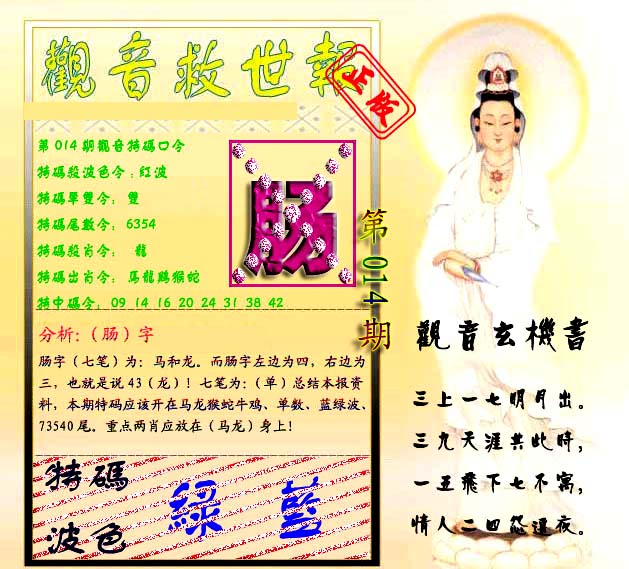 觀音救世報
正版
第014期觀音特碼口令
特碼殺波色令:紅波
特碼單雙令: 雙
特碼尾數令: 6354
特碼殺肖令: 龍
特碼出肖令: 馬龍鷄猴蛇
特中碼令: 09 14 16 20 24 31 38 42
肠
第014期
分析:(肠)字
肠字(七笔)为:马和龙。而肠字左边为四,右边为
三,也就是说43(龙)!七笔为:(单)总结本报资
料,本期特码应该开在马龙猴蛇牛鸡、单数、蓝绿波、
73540尾。重点两肖应放在(马龙)身上!
特碼
波色
綠 藍
觀音玄機書
三上一七明月出。
三九天涯共此時,
一五飛下七不寓,
情人二四怨遥夜。